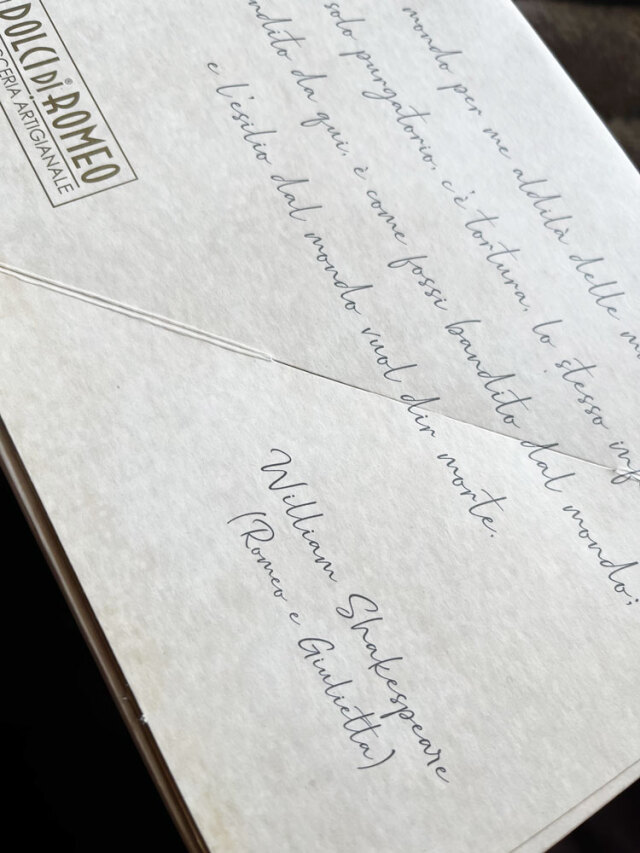 DOLCI DI ROMEO
ARTIGIANALE
mondo per me aldilà delle
solo purgatorio, c'è tortura, lo stesso
da qui, è come fossi bandito dal mondo;
e l'esilio dal mondo vuol dir morte.
William Shakespeare
(Romeo e Giulietta)